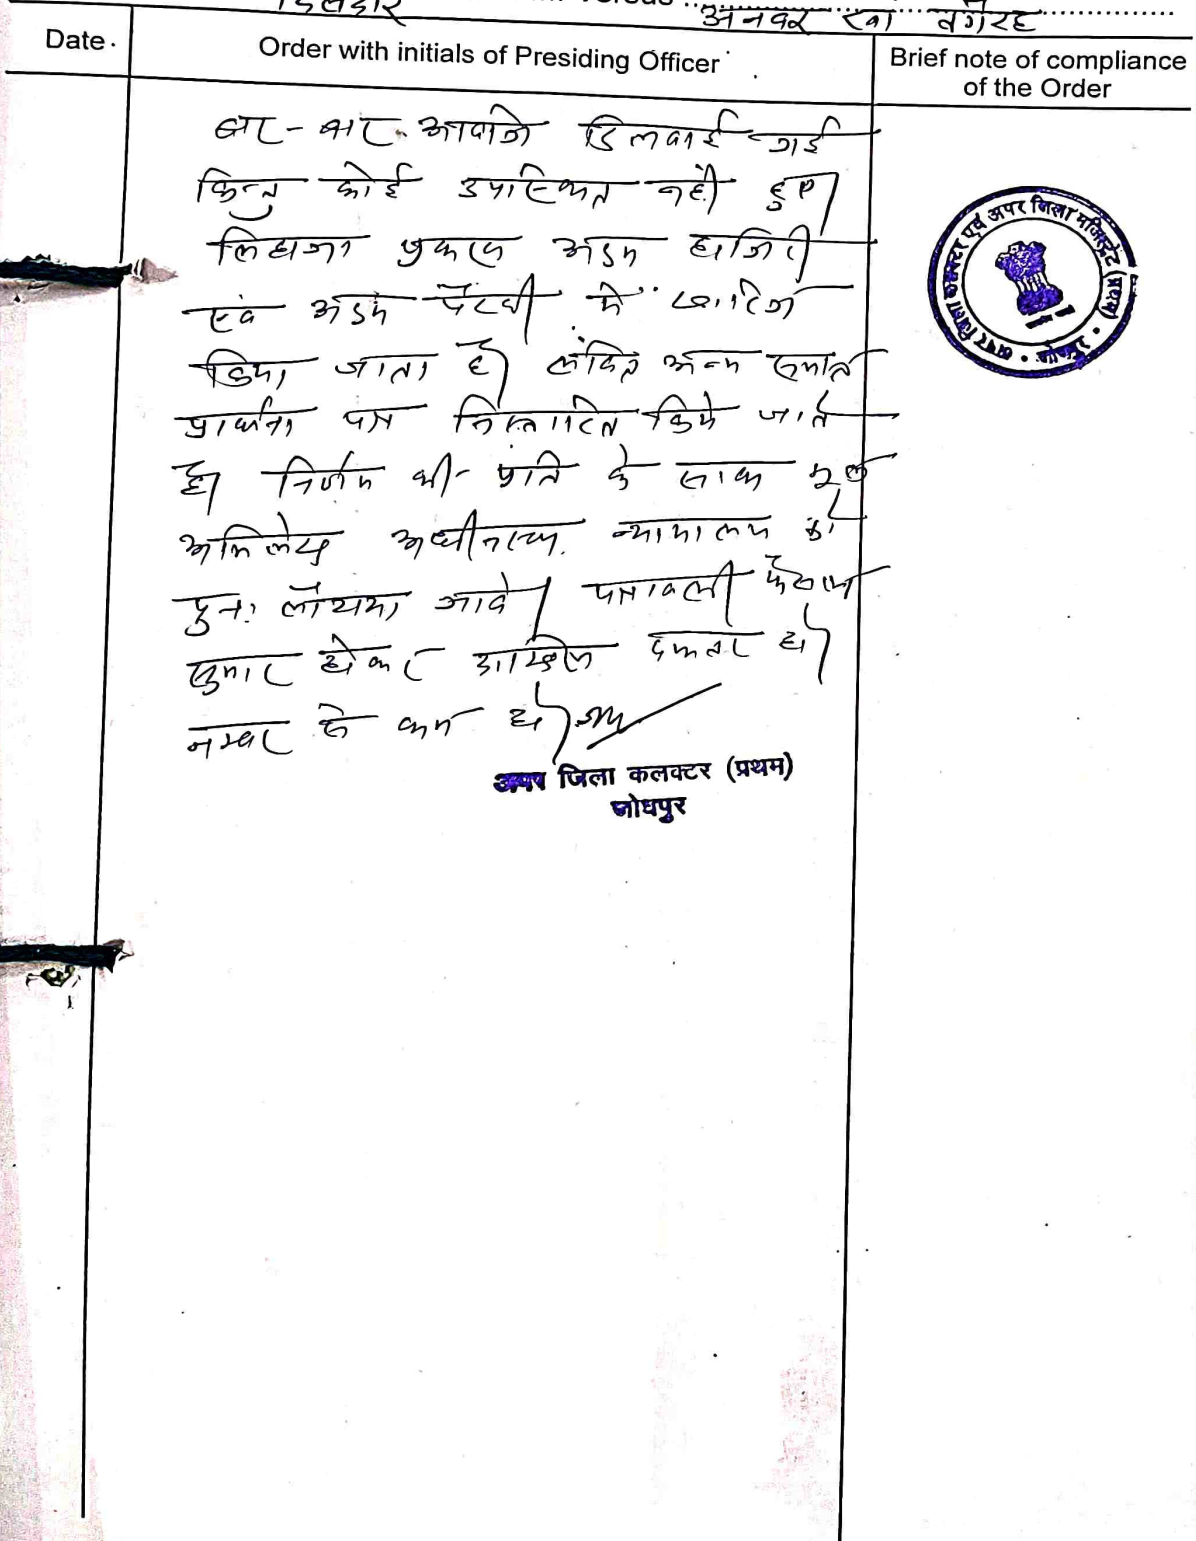 दिलदार Versus अनवर खां वगैरह
Date. Order with initials of Presiding Officer Brief note of compliance of the Order
बार-बार आवाजे दिलवाई गई
किन्तु कोई उपस्थित नहीं हुए।
लिहाजा प्रकरण अदम हाजिरी
एवं अदम पैरवी में खारिज
किया जाता है। लंबित अन्य समस्त
प्रार्थना पत्र निस्तारित किये जाते
है। निर्णय की प्रति के साथ मूल
अभिलेख अधीनस्थ न्यायालय को
पुनः लौटाया जावे। पत्रावली फैसल
शुमार होकर दाखिल दफ्तर हो।
नम्बर से कम हो।
अपर जिला कलक्टर (प्रथम)
जोधपुर
अपर जिला कलक्टर एवं अपर जिला मजिस्ट्रेट (प्रथम)